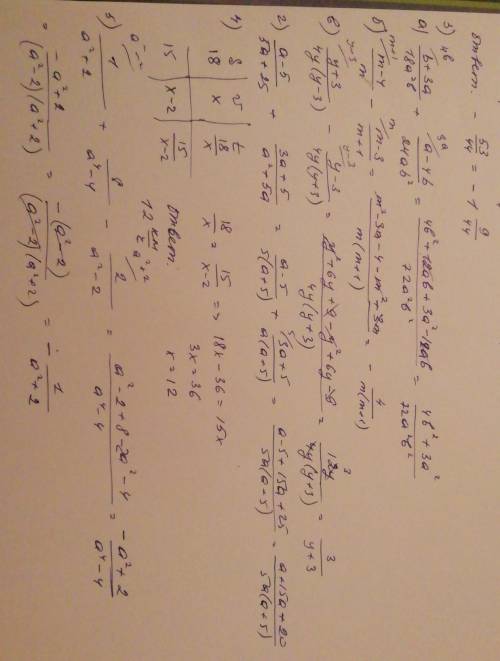 Ответ. - 53/44 = - 1 9/44
3) 4b 3a
а) b+3a/18a²b + a-4b/24ab² = 4b²+12ab+3a²-12ab/72a²b² = 4b²+3a²/72a²b²
m+1 m
б) m-4/m - m-3/m+1 = m²-3m-4-m²+3m/m(m+1) = - 4/m(m+1)
y+3 y-3
в) y+3/4y(y-3) - y-3/4y(y+3) = y²+6y+9-y²+6y-9/4y(y+3) = 12y/4y(y+3) = 3/y+3
2) a-5/5a+25 + 3a+5/a²+5a = a-5/5(a+5) + 3a+5/a(a+5) = a-5+15a+25/5a(a+5) = a+15a+20/5a(a+5)
4) S v t
18 x 18/x
15 x-2 15/x-2
18/x = 15/x-2 => 18x-36=15x
3x=36
x=12
Ответ. 12 км
5) a²-2 a²+2
1/a²+2 + 8/a⁴-4 - 2/a²-2 = a²-2+8-2a²-4/a⁴-4 = -a²+2/a⁴-4
= -a²+2/(a²-2)(a²+2) = -(a²-2)/(a²-2)(a²+2) = - 1/a²+2